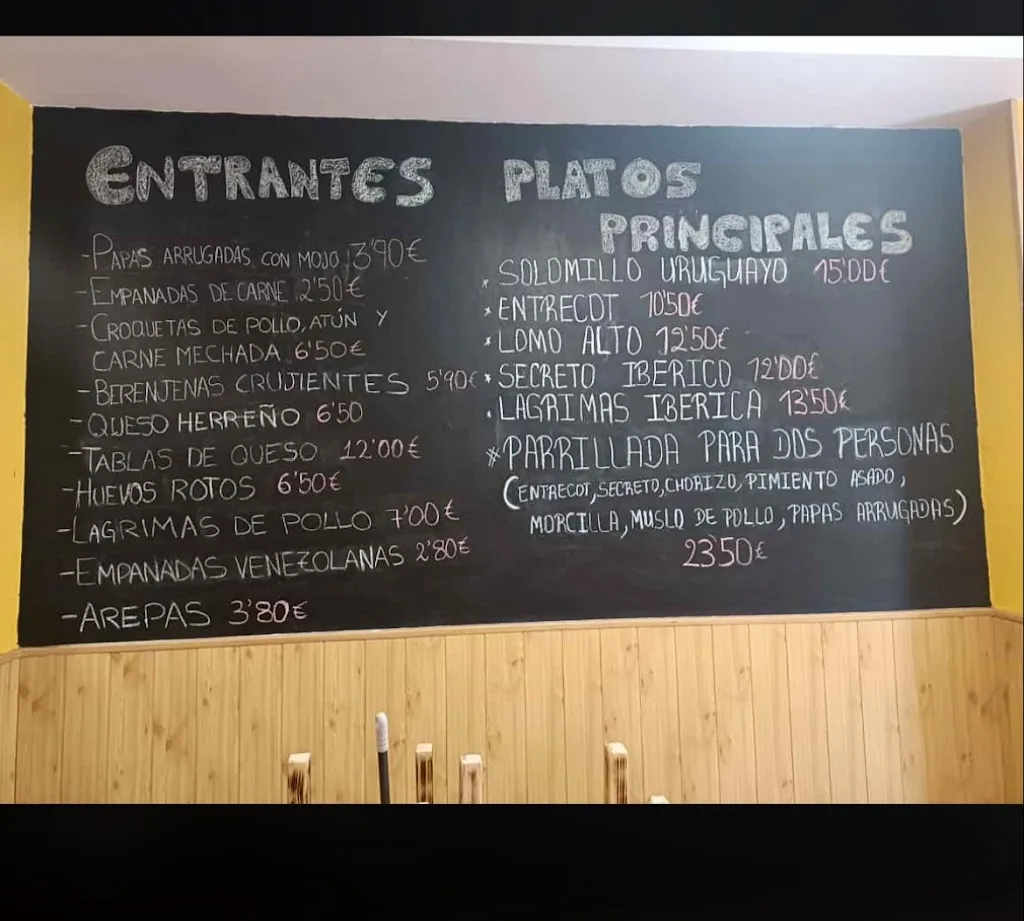 ENTRANTES
-PAPAS ARRUGADAS CON MOJO 3'90€
-EMPANADAS DE CARNE 2'50€
-CROQUETAS DE POLLO, ATÚN Y
CARNE MECHADA 6'50€
-BERENJENAS CRUJIENTES 5'90€
-QUESO HERREÑO 6'50
-TABLAS DE QUESO 12'00€
-HUEVOS ROTOS 6'50€
-LAGRIMAS DE POLLO 7'00€
-EMPANADAS VENEZOLANAS 2'80€
-AREPAS 3'80€
PLATOS
PRINCIPALES
* SOLOMILLO URUGUAYO 15'00€
* ENTRECOT 10'50€
* LOMO ALTO 12'50€
* SECRETO IBERICO 12'00€
* LAGRIMAS IBERICA 13'50€
* PARRILLADA PARA DOS PERSONAS
(ENTRECOT, SECRETO, CHORIZO, PIMIENTO ASADO,
MORCILLA, MUSLO DE POLLO, PAPAS ARRUGADAS)
23'50€